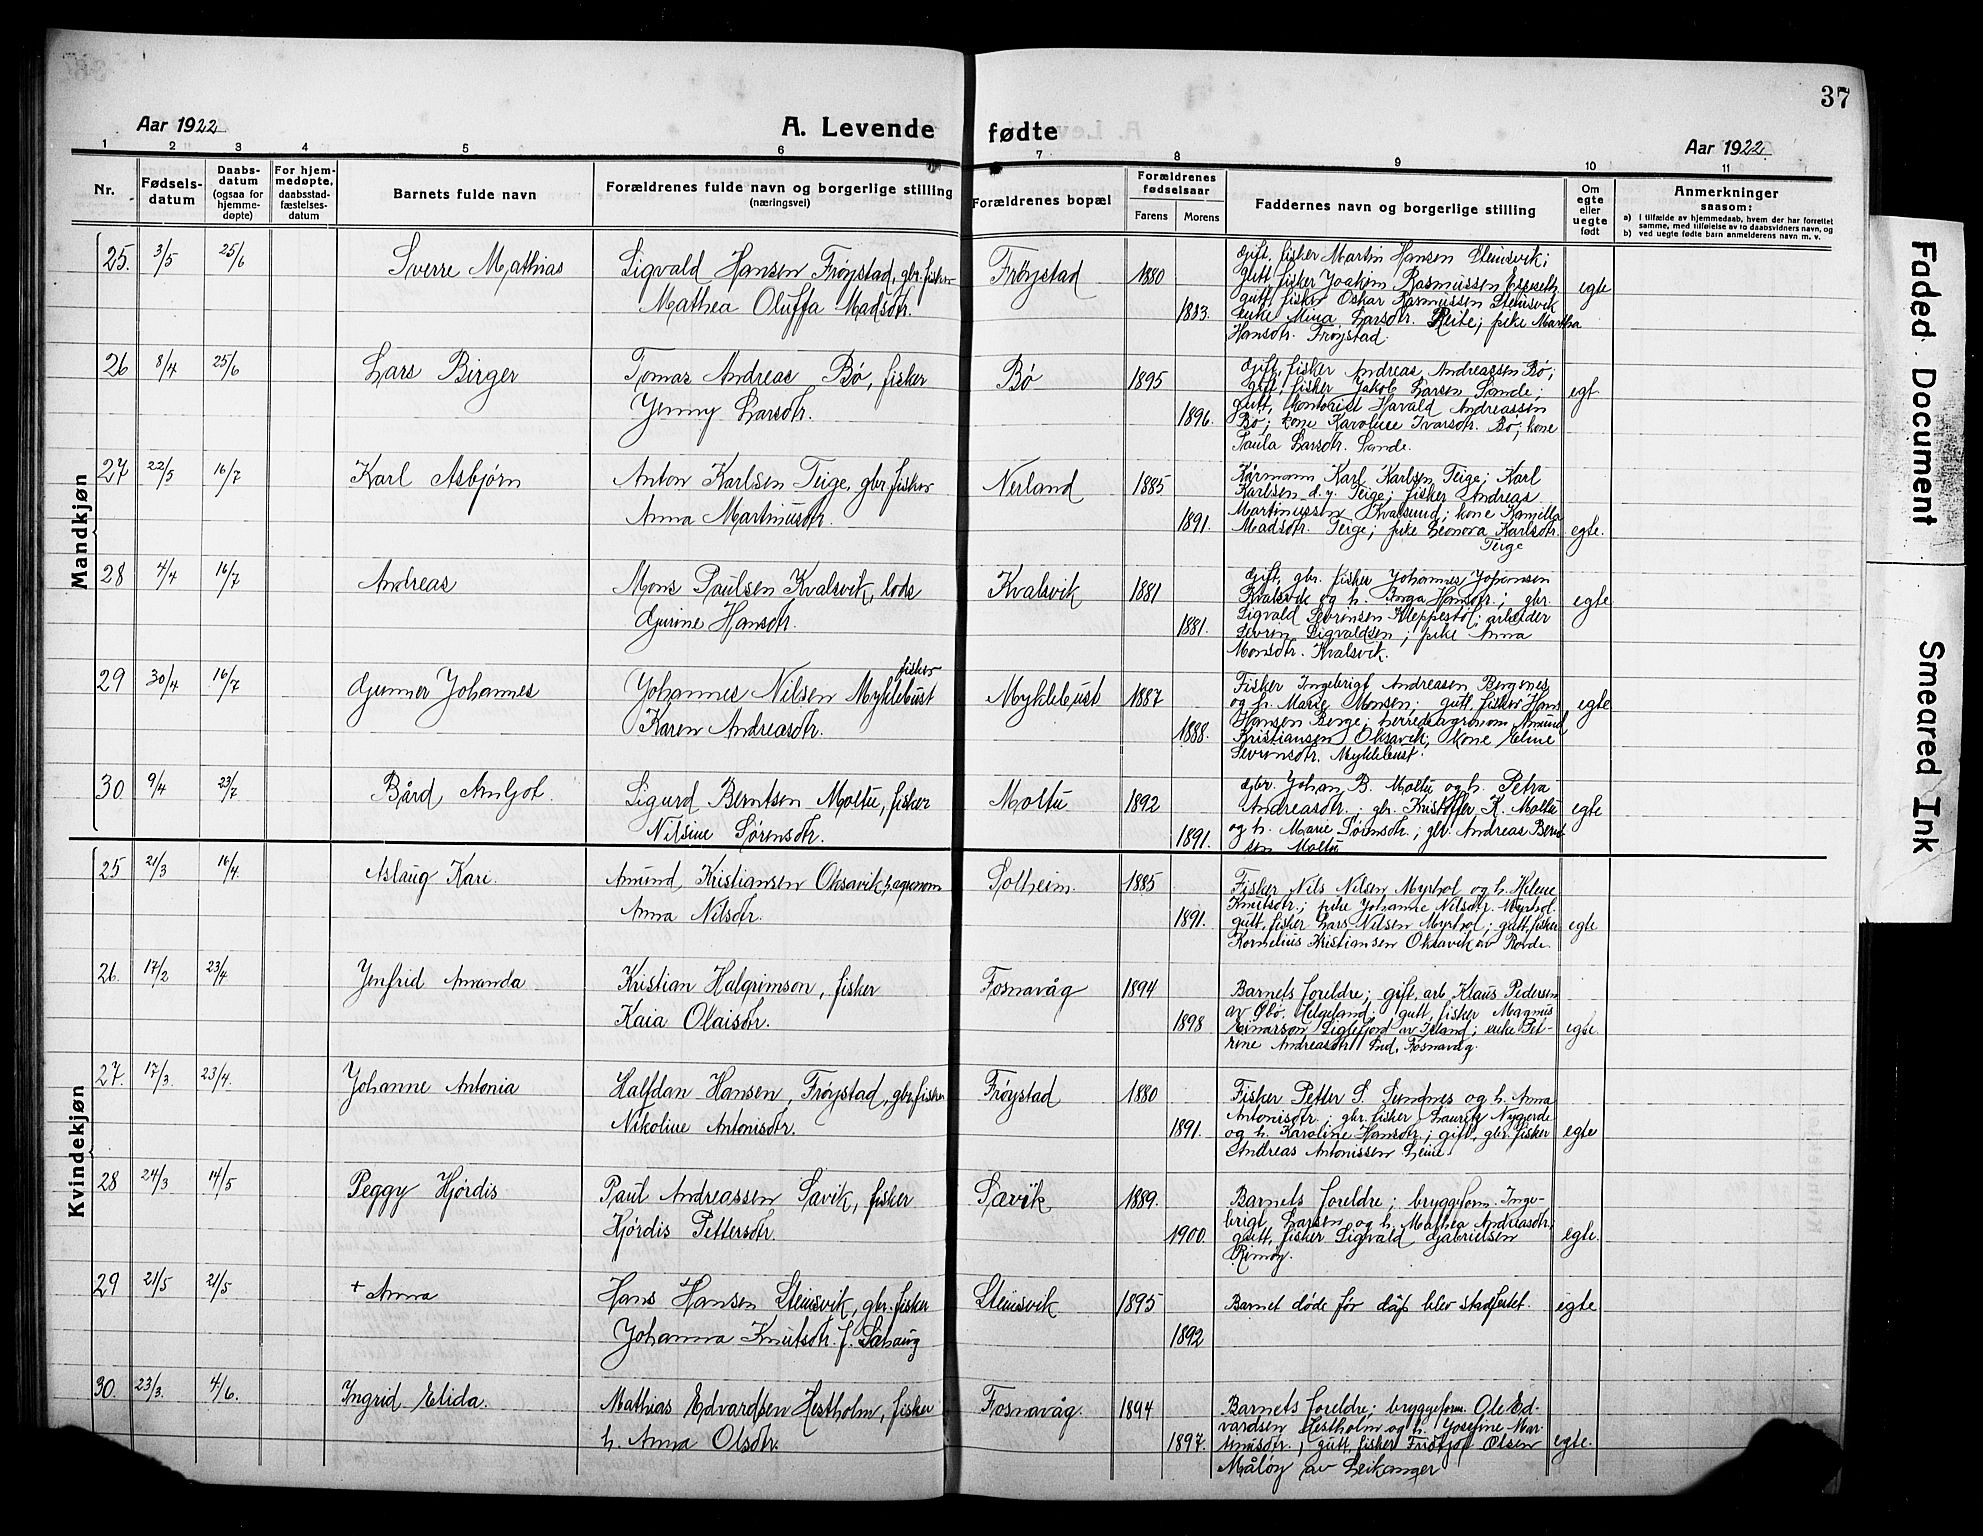 37
Aar 1922
A. Levende fødte
Aar 1922.
1 2 3 4 5 6 7 8 9 10 11
Nr.
Fødsels-
datum
Daabs-
datum
(ogsaa for
hjemme-
døpte)
For hjem-
medøpte,
daabsstad-
fæstelses-
datum
Barnets fulde navn
Forældrenes fulde navn og borgerlige stilling
(næringsvei)
Forældrenes bopæl
Forældrenes
fødselsaar
Farens Morens
Faddernes navn og borgerlige stilling
Om
egte
eller
uegte
født
Anmerkninger
saasom:
a) i tilfælde av hjemmedaab, hvem der har forrettet
samme, med tilføielse av to daabsvidners navn, og
b) ved uegte fødte barn anmelderens navn m. v.
Mandkjøn
25. 3/5 25/6 Sverre Mathias
Sigvald Hansen Frøystad, gbr. fisker
Mathea Oluffa Madsdtr.
Frøystad 1880 1883.
Gift, fisker Martin Hansen Steinsvik;
gutt, fisker Joakim Rasmussen Espeseth
gutt, fisker Oskar Rasmussen Steinsvik
enke Mina Larsdtr. Reite; pike Martha
Hansdtr. Frøystad.
egte
26 8/4 25/6 Lars Birger
Tomas Andreas Bø, fisker
Jenny Larsdtr.
Bø 1895 1896.
Gift, fisker Andreas Andreassen Bø;
gift, fisker Jakob Larsen Sande;
gutt, kontorist Harald Andreassen
Bø; kone Karoline Ivarsdtr. Bø; kone
Paula Larsdtr. Sande.
egt.
27 22/5 16/7 Karl Asbjørn
Anton Karlsen Teige, gbr. fisker
Anna Martinusdtr.
Nerland 1885 1891.
Kårmann Karl Karlsen Teige; Karl
Karlsen d. y. Teige; fisker Andreas
Martinussen Kvalsund; kone Kamilla
Madsdtr. Teige; pike Leonora Karlsdtr.
Teige
egte.
28 4/4 16/7 Andreas
Mons Paulsen Kvalsvik, lods
Gurine Hansdtr.
Kvalsvik 1881 1881.
Gift, gbr. fisker Johannes Johansen
Kvalsvik og h. Inga Hansdtr.; gbr.
Sigvald Sevrensen Kleppestøl; arbeider
Sevrin Sigvaldsen; pike Anna
Monsdtr. Kvalsvik.
egte
29 30/4 16/7 Gunnar Johannes
fisker
Johannes Nilsen Myklebust
Karen Andreasdtr.
Myklebust 1887 1888.
Fisker Ingebrigt Andreasen Bergsnes
og h. Marie Monsen; gutt, fisker Hans
Hansen Berge; herredsagronom Amund
Kristiansen Oksavik, kone Eline
Sevrensdtr. Myklebust.
egte
30 9/4 23/7 Bård Arnljot.
Sigurd Berntsen Moltu, fisker
Nilsine Sørensdtr.
Moltu 1892 1891.
gbr. Johan B. Moltu og h. Petra
Andreasdtr.; gbr. Kristoffer K. Moltu
og h. Marie Sørensdtr.; gbr. Andreas Bernt-
sen Moltu
egte
Kvindekjøn
25 21/3 16/4. Aslaug Kare.
Amund Kristiansen Oksavik, h.agronom
Anna Nilsdtr.
Solheim. 1885 1891.
Fisker Nils Nilsen Myrhol og h. Helene
Knutsdtr.; pike Johanne Nilsdtr. Myrhol.
gutt, fisker Lars Nilsen Myrhol; gutt, fisker
Kornelius Kristiansen Oksavik av Rovde.
egte
26. 17/2 23/4 Jenfrid Amanda
Kristian Halgrimson, fisker
Kaia Olaisdtr.
Fosnavåg 1894 1898
Barnets foreldre; gift, arb. Klaus Pedersen
av Øbø, Helgeland; gutt, fisker Magnus
Einarson Siglefjord av Island; enke Pet-
rine Andreasdtr. Fosnavåg.
egte.
27. 17/3. 23/4. Johanne Antonia
Halfdan Hansen, Frøystad, gbr, fisker
Nikoline Antonisdtr.
Frøystad 1880 1891.
Fisker Petter S. Sundnes og h. Anna
Antonisdtr.; gbr. fisker Laurits Nygjerde
og h. Karoline Hansdtr.; gift, gbr. fisker
Andreas Antonissen Leine.
egte
28 24/3 14/5 Peggy Hjørdis
Paul Andreassen Sævik, fisker
Hjørdis Pettersdtr.
Sævik 1889. 1900.
Barnets foreldre; bryggeform. Inge-
brigt Larsen og h. Mathea Andreasdtr.
gutt, fisker Sigvald Gabrielsen
Rimøy.
egte.
29 21/5 21/5 + Anna
Hans Hansen Steinsvik, gbr. fisker
Johanna Knutsdtr. f. Sæhaug
Steinsvik 1895 1892
Barnet døde før dåp blev stadfestet.
egte
30. 23/3. 4/6. Ingrid Elida.
Mathias Edvardsen Hestholm, fisker
h. Anna Olsdtr.
Fosnavåg. 1894 1897.
Barnets foreldre; bryggeform. Ole Ed-
vardsen Hestholm og h. Josefine Mar-
tinusdtr.; gutt, fisker Fridtjof Olsen
Måløy av Leikanger
egte.
Faded Document
Smeared Ink